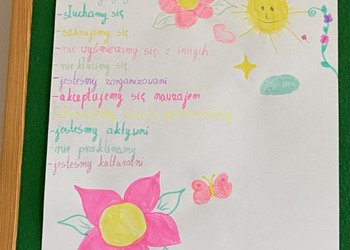 -słuchamy się
-szanujemy się
-nie wyśmiewamy się z innych
-nie kłócimy się
-jesteśmy zorganizowani
-akceptujemy się nawzajem
-jesteśmy aktywni
-nie przeklinamy
-jesteśmy kulturalni